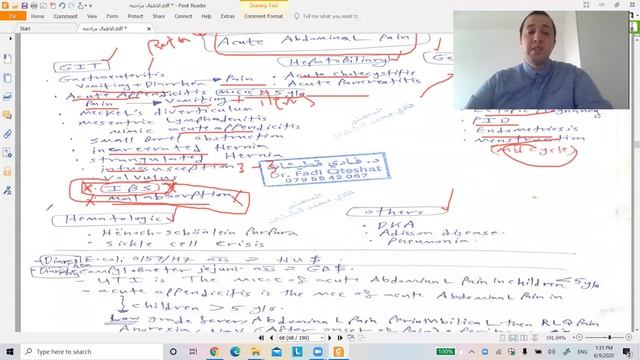 الاطفال مراجعه.pdf * - Foxit Reader
Drawing Tool
File Home Comment View Form Protect Share Help Extras Comment Format Tell me what you want to do
Start
Acute Abdominal pain
GIT
Hepatobiliary
Ge
Gastroenteritis
Vomiting + Diarrhea → Pain
Acute Appendicitis
pain → Vomiting +
Meckel's diverticulum
mesentric lymphadenitis
mimic acute appendicitis
small Bowel obstruction
incarcerated Hernia
strangulated Hernia
intussusception 3 - 3
Volvulus
X (IBS) X
X malabsorption X
Acute cholecystitis
Acute pancreatitis
Ectopic pregnancy
PID
Endometriosis
menstruation
(mid cycle)
د. فادي قطيشات
Dr. Fadi Qteshat
0795542067
Hematologic
Henoch-schönlein Purpura
sickle cell crisis
others
DKA
Adisson disease
Pneumonia
E.coli O157/H7 ass → HUS.
Campylobacter jejuni ass → GBS.
UTI is The mcc of acute Abdominal Pain in children ≤ 5 y/o
acute appendicitis is the mcc of acute Abdominal Pain in
children > 5 y/o.
Low grade Severe Abdominal Pain Periumbilical then RLQ Pain
68 (68 / 190)
191.04%
Type here to search
100%
ENG
1:31 PM
6/9/2020